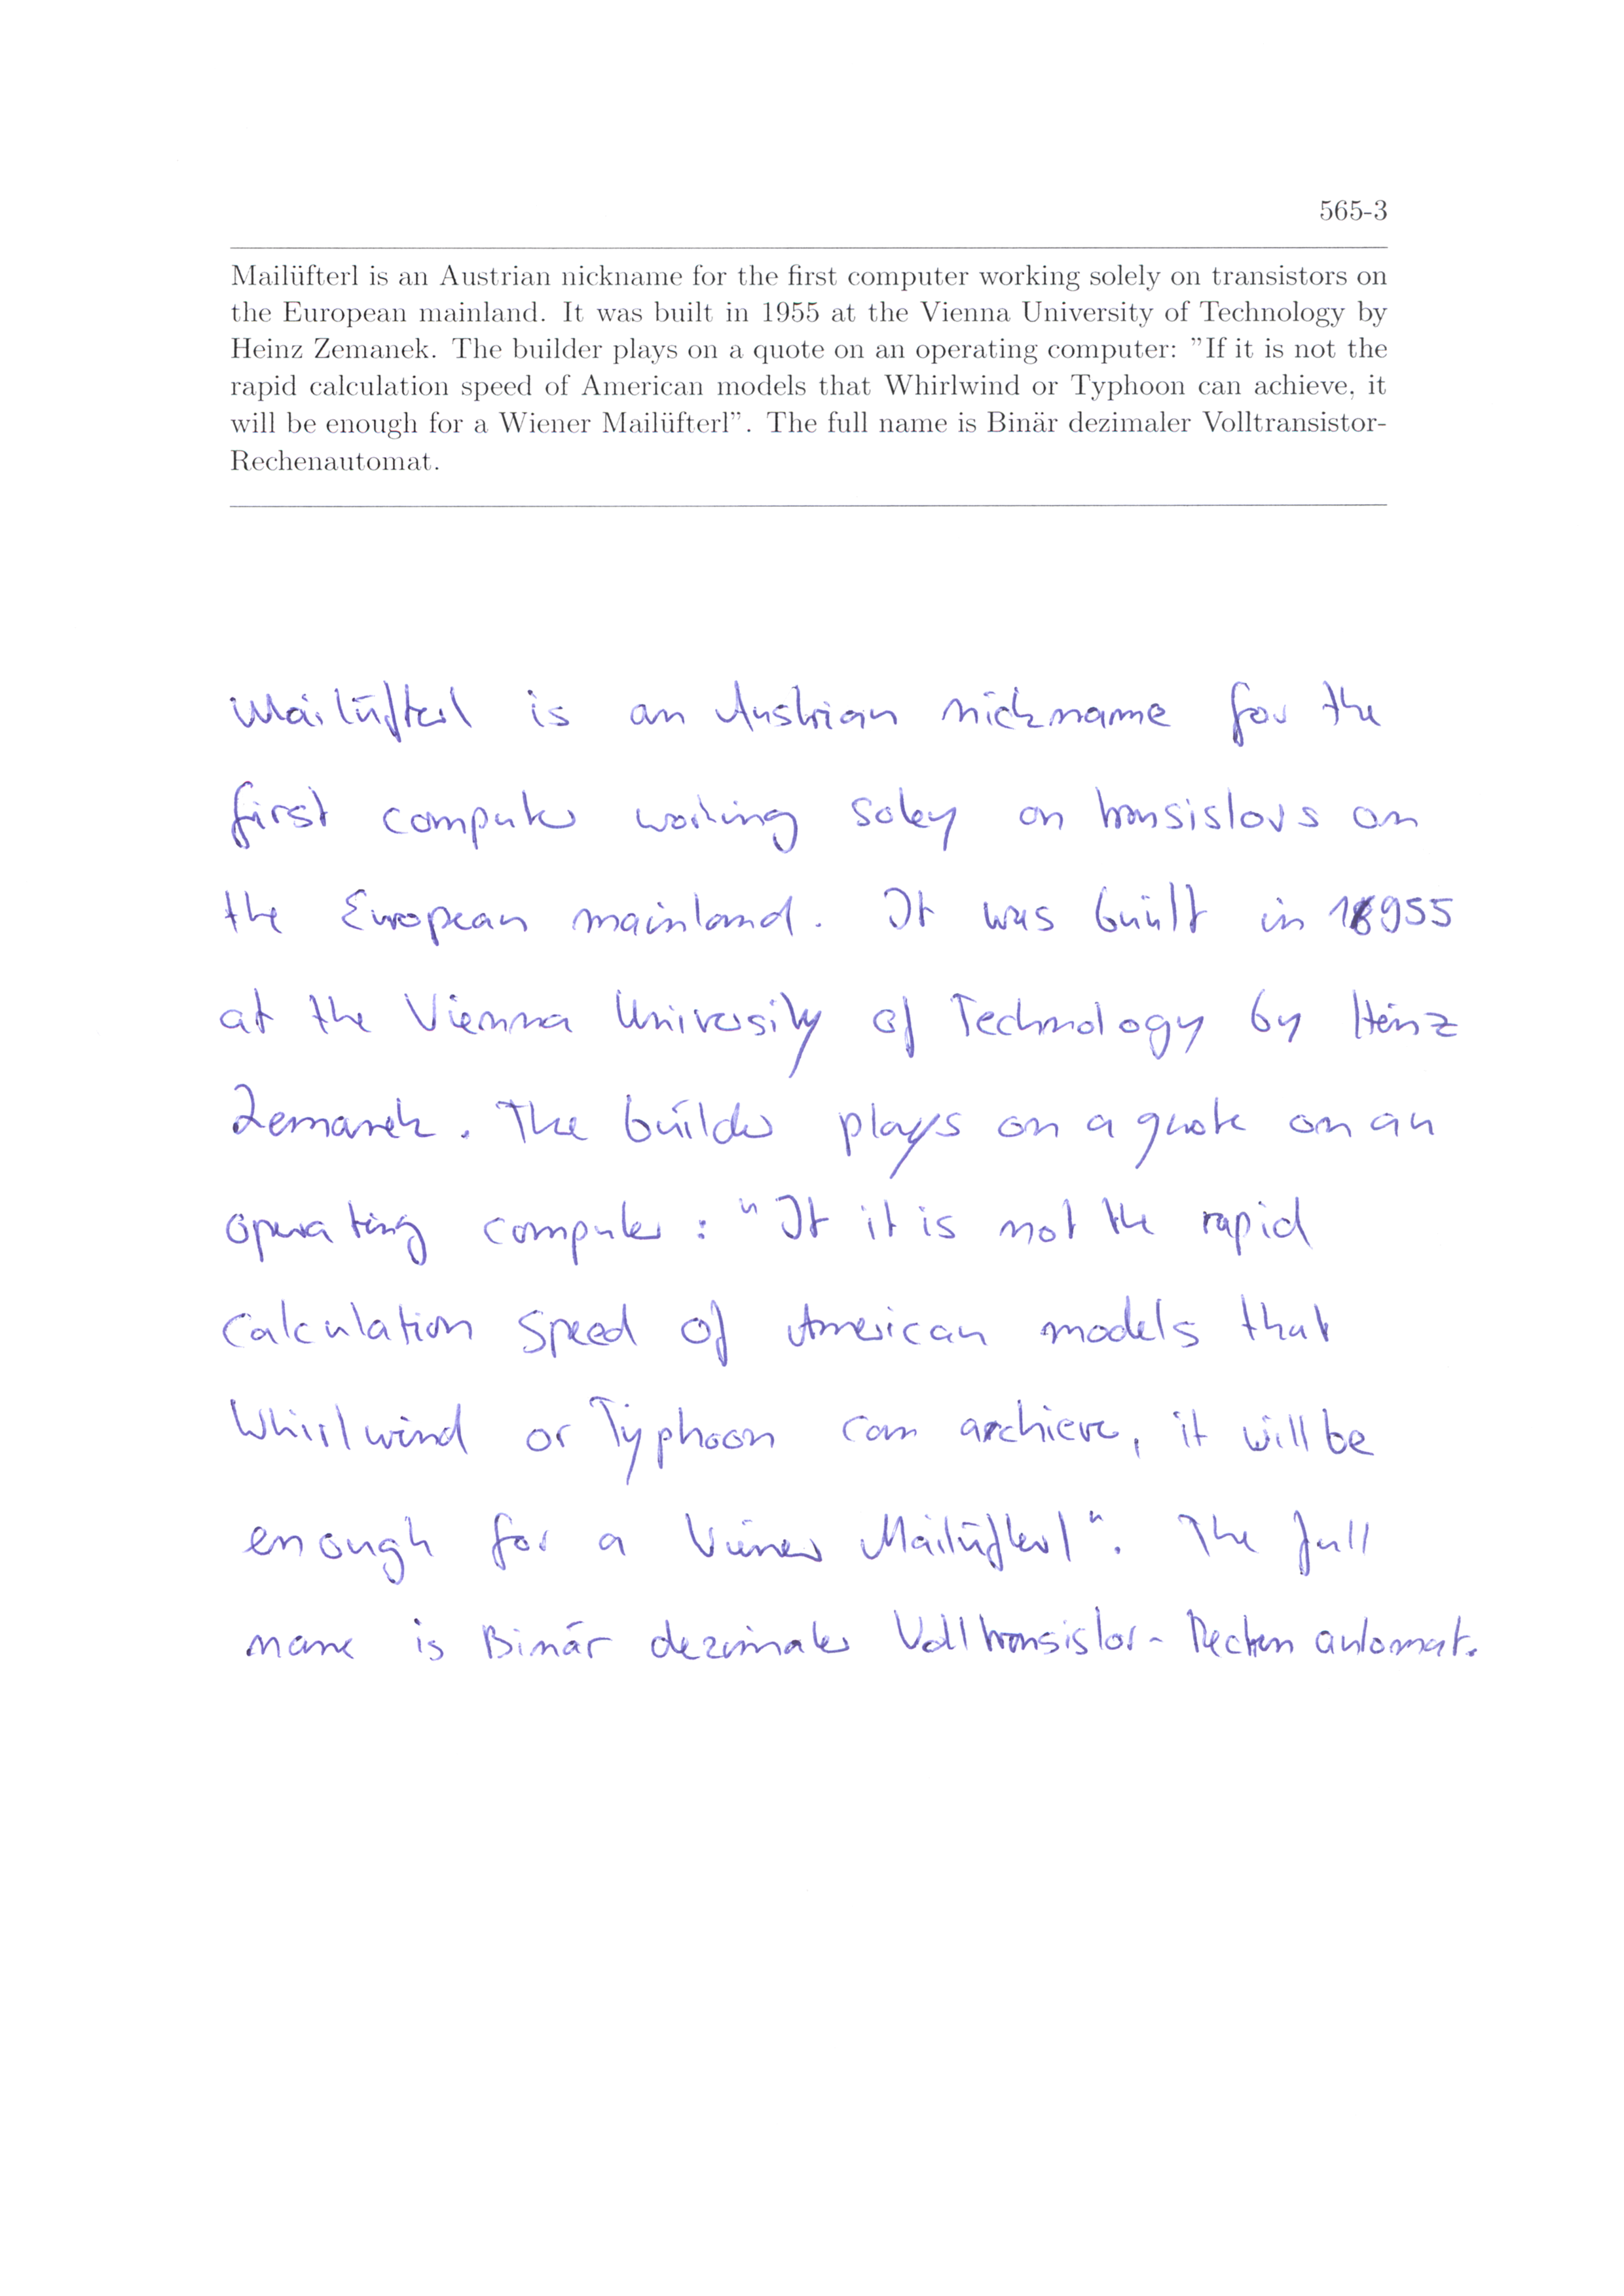 565-3
Mailüfterl is an Austrian nickname for the first computer working solely on transistors on
the European mainland. It was built in 1955 at the Vienna University of Technology by
Heinz Zemanek. The builder plays on a quote on an operating computer: "If it is not the
rapid calculation speed of American models that Whirlwind or Typhoon can achieve, it
will be enough for a Wiener Mailüfterl". The full name is Binär dezimaler Volltransistor-
Rechenautomat.
Mailüfterl is an Austrian nickname for the
first computer working soley on transistors on
the European mainland. It was built in 1955
at the Vienna University of Technology by Heinz
Zemanek. The builder plays on a quote on an
operating computer: "It it is not the rapid
calculation speed of American models that
Whirlwind or Typhoon can archieve, it will be
enough for a Wiener Mailüfterl". The full
name is Binär dezimaler Volltransistor-Rechenautomat.